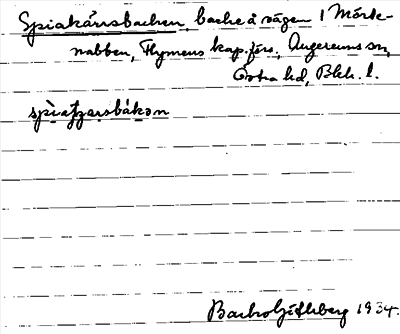 Spiakärrsbacken, backe å vägen i Mörte-
nabben, Flymens kap.förs., Augerums sn,
Östra hd, Blek. l.
spìatjarsbákan
1934.